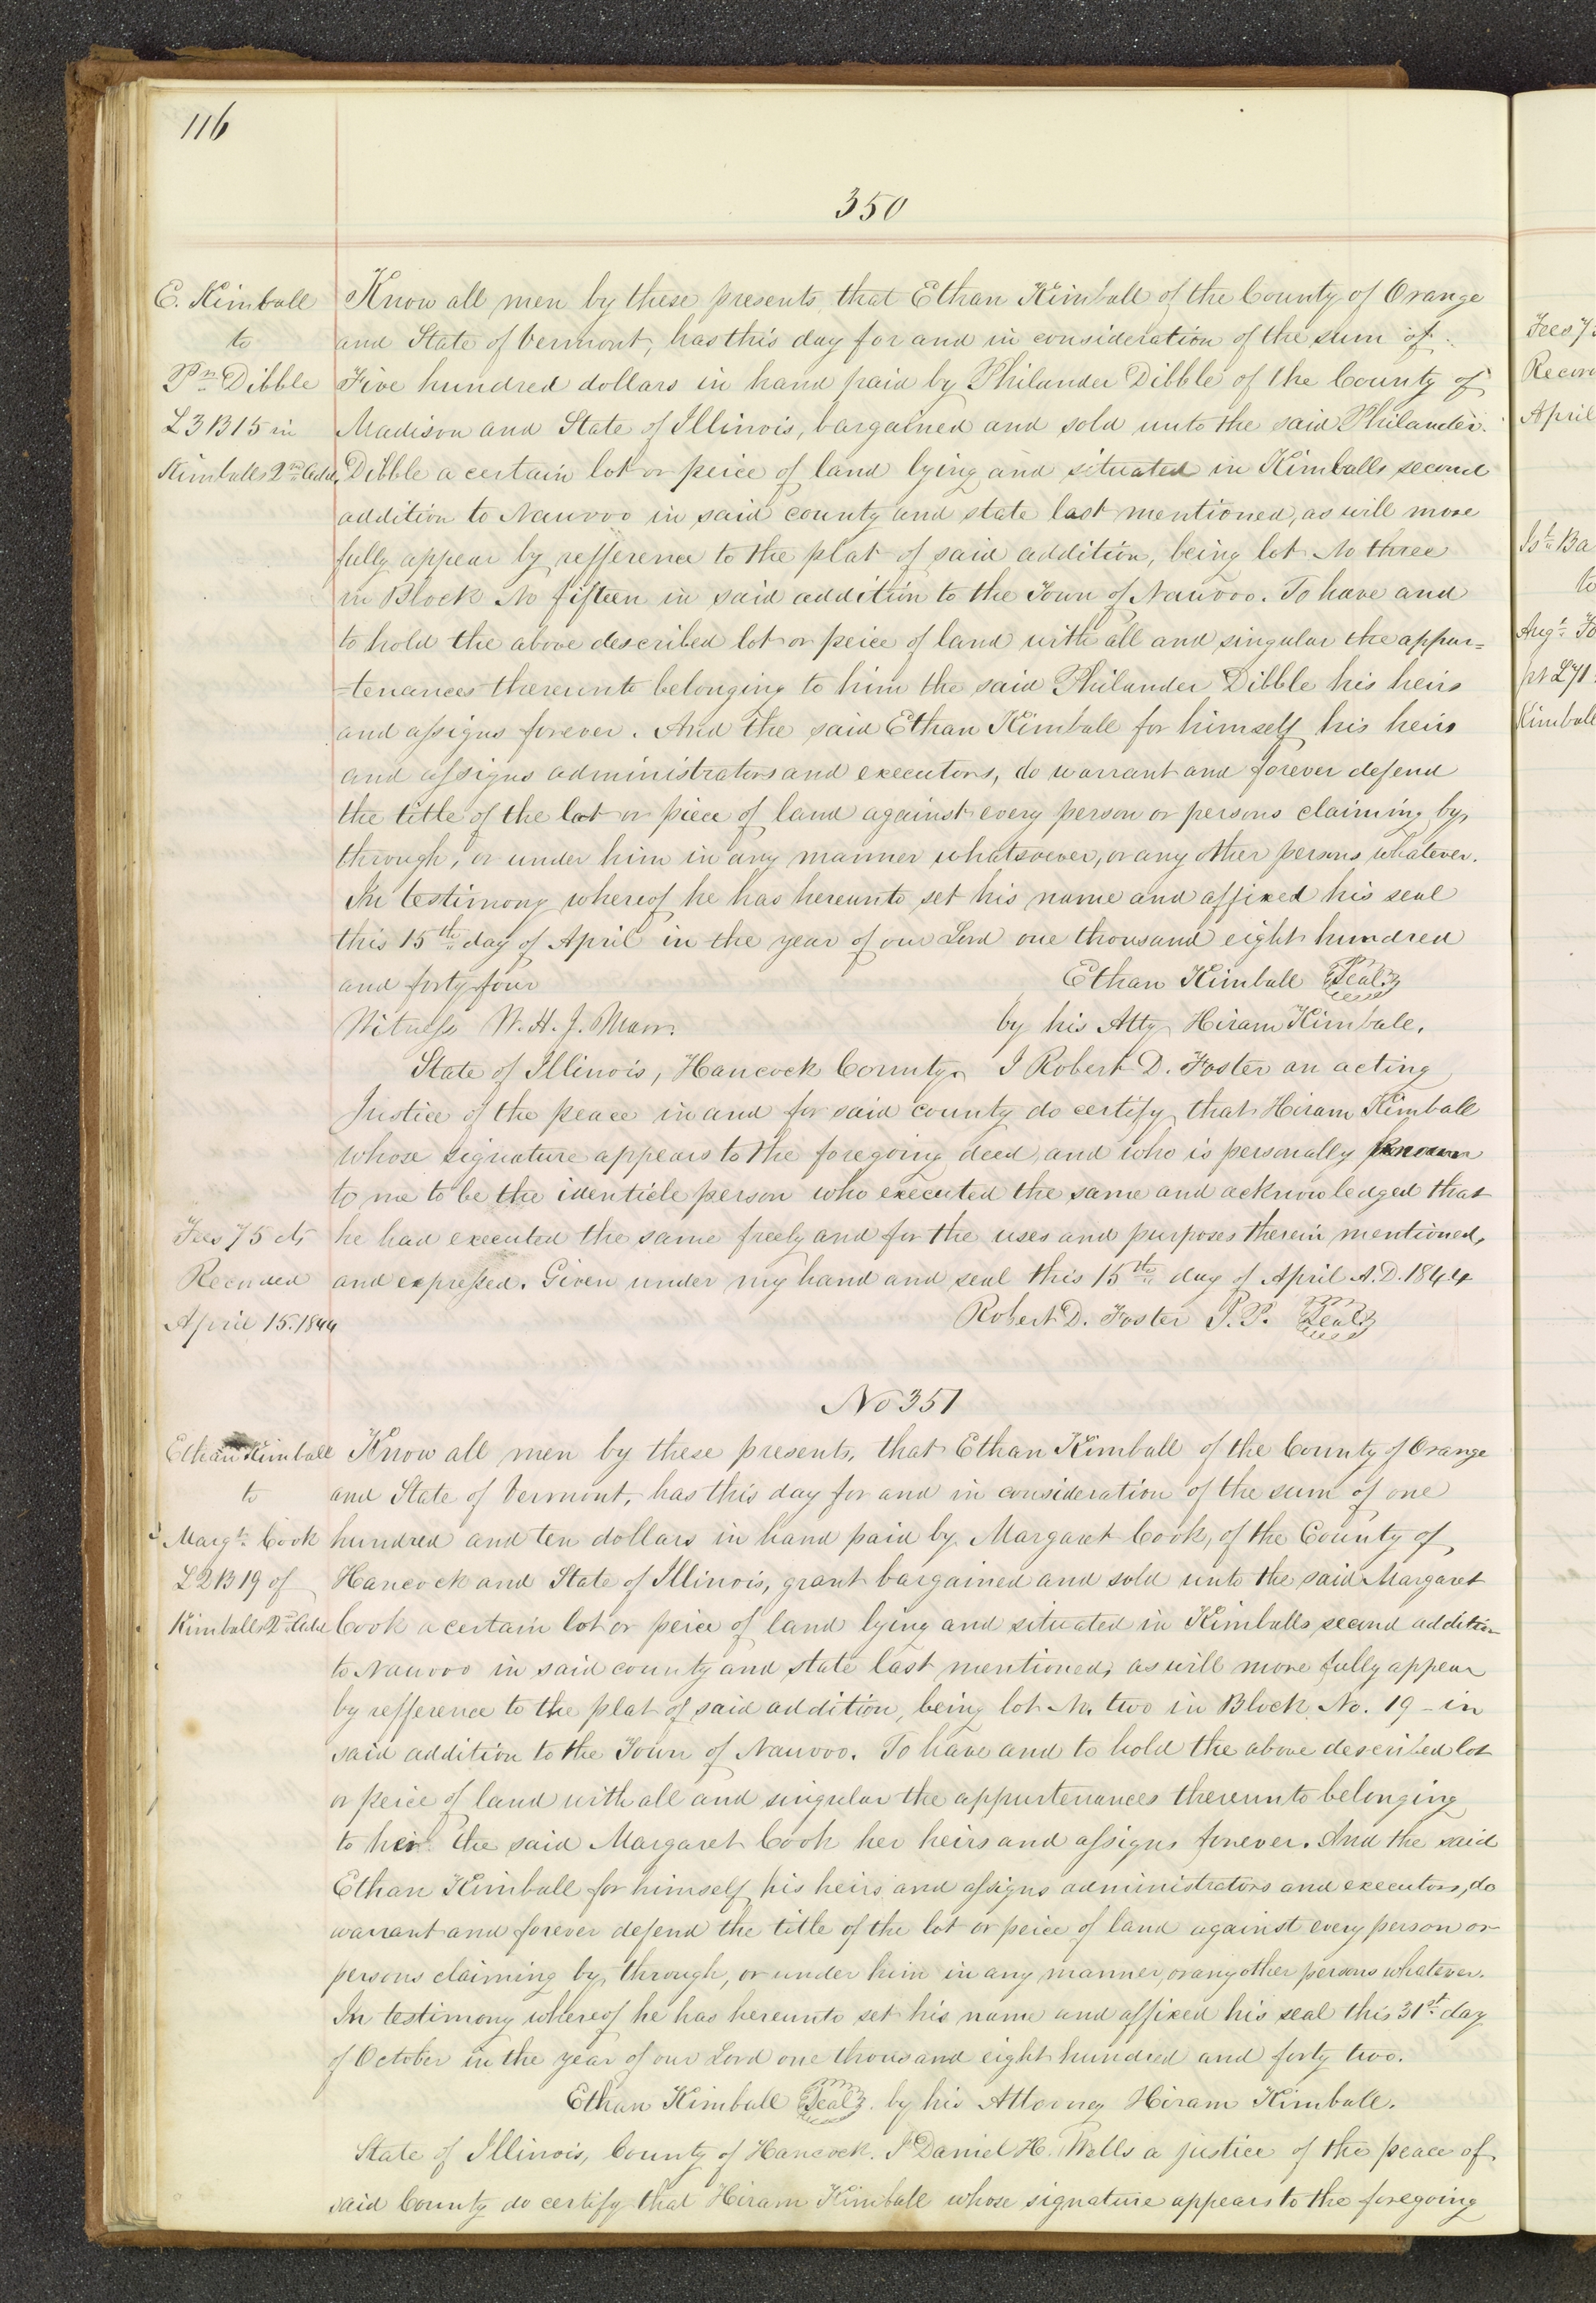 116
350
E. Kimball
to
Pr. Dibble
L3 B15 in
Kimballs 2nd Add.
Know all men by these presents, that Ethan Kimball of the County of Orange
and State of Vermont, has this day for and in consideration of the sum of
Five hundred dollars in hand paid by Philander Dibble of the County of
Madison and State of Illinois, bargained and sold unto the said Philander
Dibble a certain lot or peice of land lying and situated in Kimballs second
addition to Nauvoo in said county and state last mentioned, as will more
fully appear by refference to the plat of said addition, being lot No three
in Block No fifteen in said addition to the Town of Nauvoo. To have and
to hold the above described lot or peice of land with all and singular the appur=
=tenances thereunto belonging to him the said Philander Dibble his heirs
and assigns forever. And the said Ethan Kimball for himself his heirs
and assigns administrators and executors, do warrant and forever defend
the title of the lot or piece of land against every person or persons claiming by,
through, or under him in any manner whatsoever, or any other persons whatever.
In testimony whereof he has hereunto set his name and affixed his seal
this 15th day of April in the year of our Lord one thousand eight hundred
and forty four Ethan Kimball Seal
Witness W. H. J. Marr. by his Atty Hiram Kimball.
State of Illinois, Hancock County. I Robert D. Foster an acting
Justice of the peace in and for said county do certify that Hiram Kimball
whose signature appears to the foregoing deed, and who is personally known
to me to be the identicle person who executed the same and acknowledged that
he had executed the same freely and for the uses and purposes therein mentioned,
and expressed. Given under my hand and seal this 15th day of April A.D. 1844
Robert D. Foster J. P. Seal
Fees 75 cts
Recorded
April 15. 1844
No 351
Ethan Kimball
to
Margt. Cook
L2 B19 of
Kimballs 2nd Add
Know all men by these presents, that Ethan Kimball of the County of Orange
and State of Vermont, has this day for and in consideration of the sum of one
hundred and ten dollars in hand paid by Margaret Cook, of the County of
Hancock and State of Illinois, grant bargained and sold unto the said Margaret
Cook a certain lot or peice of land lying and situated in Kimballs second addition
to Nauvoo in said county and state last mentioned, as will more fully appear
by refference to the plat of said addition, being lot No. two in Block No. 19 - in
said addition to the Town of Nauvoo. To have and to hold the above described lot
or peice of land with all and singular the appurtenances thereunto belonging
to her the said Margaret Cook her heirs and assigns forever. And the said
Ethan Kimball for himself his heirs and assigns administrators and executors, do
warrant and forever defend the title of the lot or peice of land against every person or
persons claiming by, through, or under him in any manner, or any other persons whatever.
In testimony whereof he has hereunto set his name and affixed his seal this 31st day
of October in the year of our Lord one thousand eight hundred and forty two.
Ethan Kimball Seal. by his Attorney Hiram Kimball.
State of Illinois, County of Hancock. I Daniel H. Wells a justice of the peace of
said County do certify that Hiram Kimball whose signature appears to the foregoing
Fees 7
Recor
April
Jst. Ba
to
Augt. Fo
pt L71
Kimball